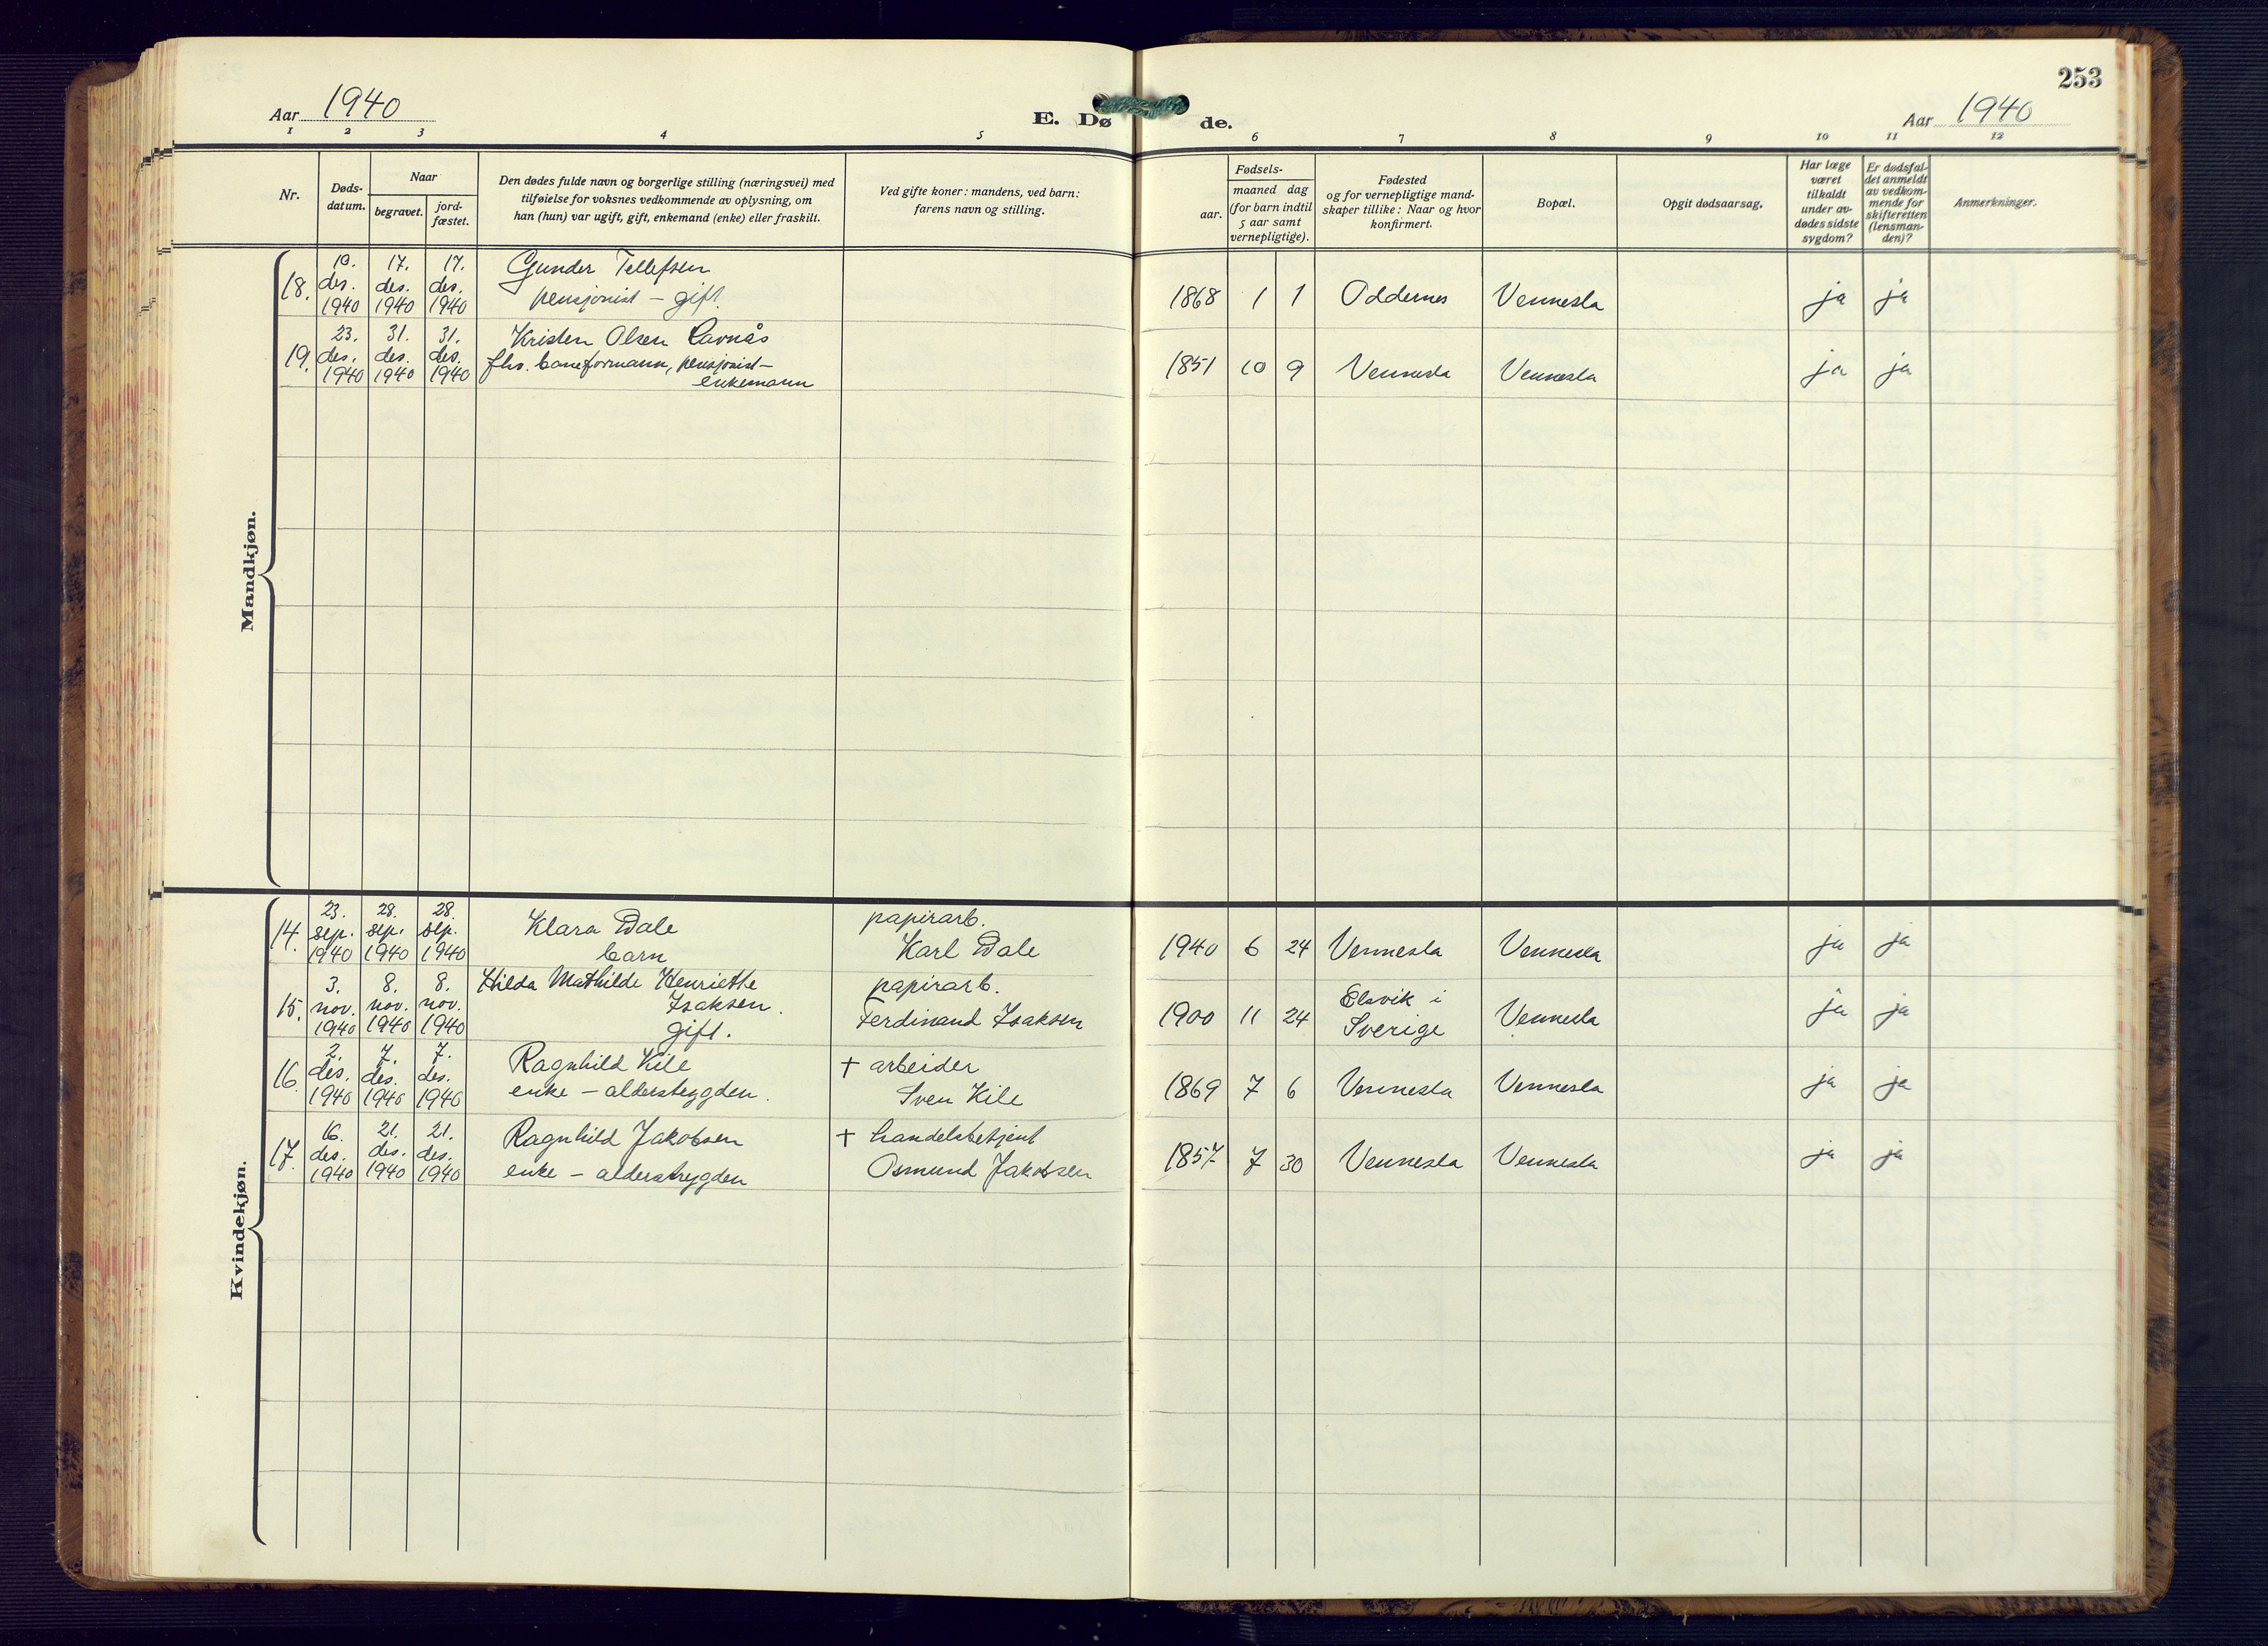 253
Aar 1940
E. Dø
de.
Aar 1940
1 2 3 4 5 6 7 8 9 10 11 12
Nr.
Døds-
datum.
Naar
begravet.
jord-
fæstet.
Den dødes fulde navn og borgerlige stilling (næringsvei) med
tilføielse for voksnes vedkommende av oplysning, om
han (hun) var ugift, gift, enkemand (enke) eller fraskilt.
Ved gifte koner: mandens, ved barn:
farens navn og stilling.
Fødsels-
aar.
maaned dag
(for barn indtil
5 aar samt
vernepligtige).
Fødested
og for vernepligtige mand-
skaper tillike: Naar og hvor
konfirmert.
Bopæl.
Opgit dødsaarsag.
Har læge
været
tilkaldt
under av-
dødes sidste
sygdom?
Er dødsfal-
det anmeldt
av vedkom-
mende for
skifteretten
(lensman-
den)?
Anmerkninger.
Mandkjøn.
18.
des.
1940
17.
des.
1940
17.
des.
1940
Gunder Tellefsen
pensjonist – gift.
1868 1 1 Oddernes Vennesla ja ja
19.
23.
des.
1940
31.
des.
1940
31.
des.
1940
Kristen Olsen Ravnås
fhv. baneformann, pensjonist –
enkemann
1851 10 9 Vennesla Vennesla ja ja
Kvindekjøn.
14.
23.
sep.
1940
28.
sep.
1940
28.
sep.
1940
Klara Dale
barn
papirarb.
Karl Dale
1940 6 24 Vennesla Vennesla ja ja
15.
3.
nov.
1940
8.
nov.
1940
8.
nov.
1940
Hilda Mathilde Henriette
Isaksen.
gift.
papirarb.
Ferdinand Isaksen
1900 11 24
i
Sverige
Vennesla ja ja
16.
2.
des.
1940
7.
des.
1940
7.
des.
1940
Ragnhild Kile
enke – alderstrygden.
† arbeider
Sven Kile
1869 7 6 Vennesla Vennesla ja ja
17.
16.
des.
1940
21.
des.
1940
21.
des.
1940
Ragnhild Jakobsen
enke – alderstrygden
† handelsbetjent
Osmund Jakobsen
1857 7 30 Vennesla Vennesla ja ja